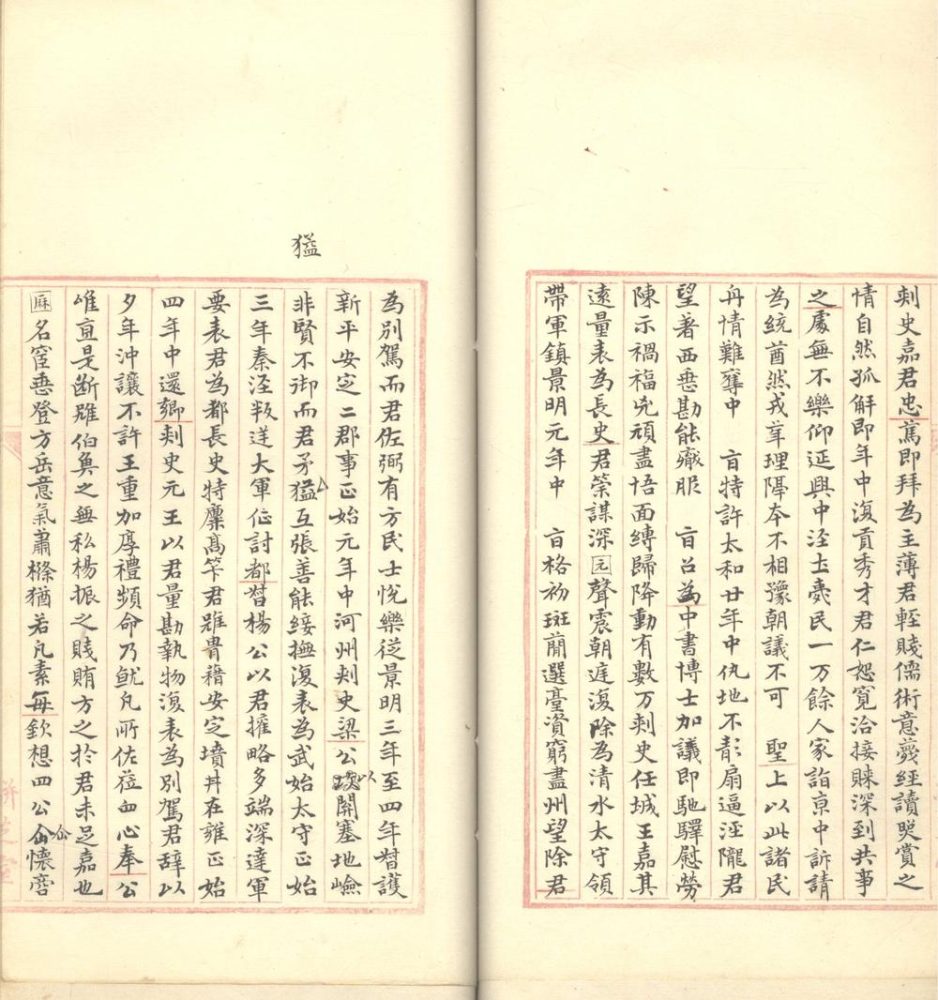 刺史嘉君忠篤即拜為主薄君輕賤儒術意蔑經讀哭賞之
情自然孤解即年中復貢秀才君仁恕寬洽接賕深到共事
之處無不樂仰延興中涇土喪民一万餘人家詣京中訴請
為統酋然戎華理隔本不相豫朝議不可 聖上以此諸民
丹情難奪中 旨特許太和廿年中仇地不靖扇逼涇隴君
望著西垂勘能厭服 旨召為中書博士加議即馳驛慰勞
陳示禍福兇頑盡悟面縛歸降動有數万刺史任城王嘉其
遠量表為長史君榮謀深囗聲震朝庭復除為清水太守領
帶軍鎮景明元年中 旨格初班簡選臺資窮盡州望除君
為別駕而君佐弼有方民士悅樂從景明三年至四年督護
新平安定二郡事正始元年中河州刾史梁公以開塞地嶮
非賢不御而君矛猛互張善能綏撫復表為武始太守正始
三年秦涇叛逆大軍征討都督楊公以君權略多端深達軍
要表君為都長史特稟高筞君雖貫藉安定墳井在雍正始
四年中還鄉刾史元王以君量勘執物復表為別駕君辭以
夕年沖讓不許王重加厚禮頻命乃就凡所佐莅血心奉公
唯直是斷雖伯奐之無私楊振之賤賄方之於君未足嘉也
囗名宦悉登方岳意氣蕭條猶若凡素每欽想四公仚懷啻
猛